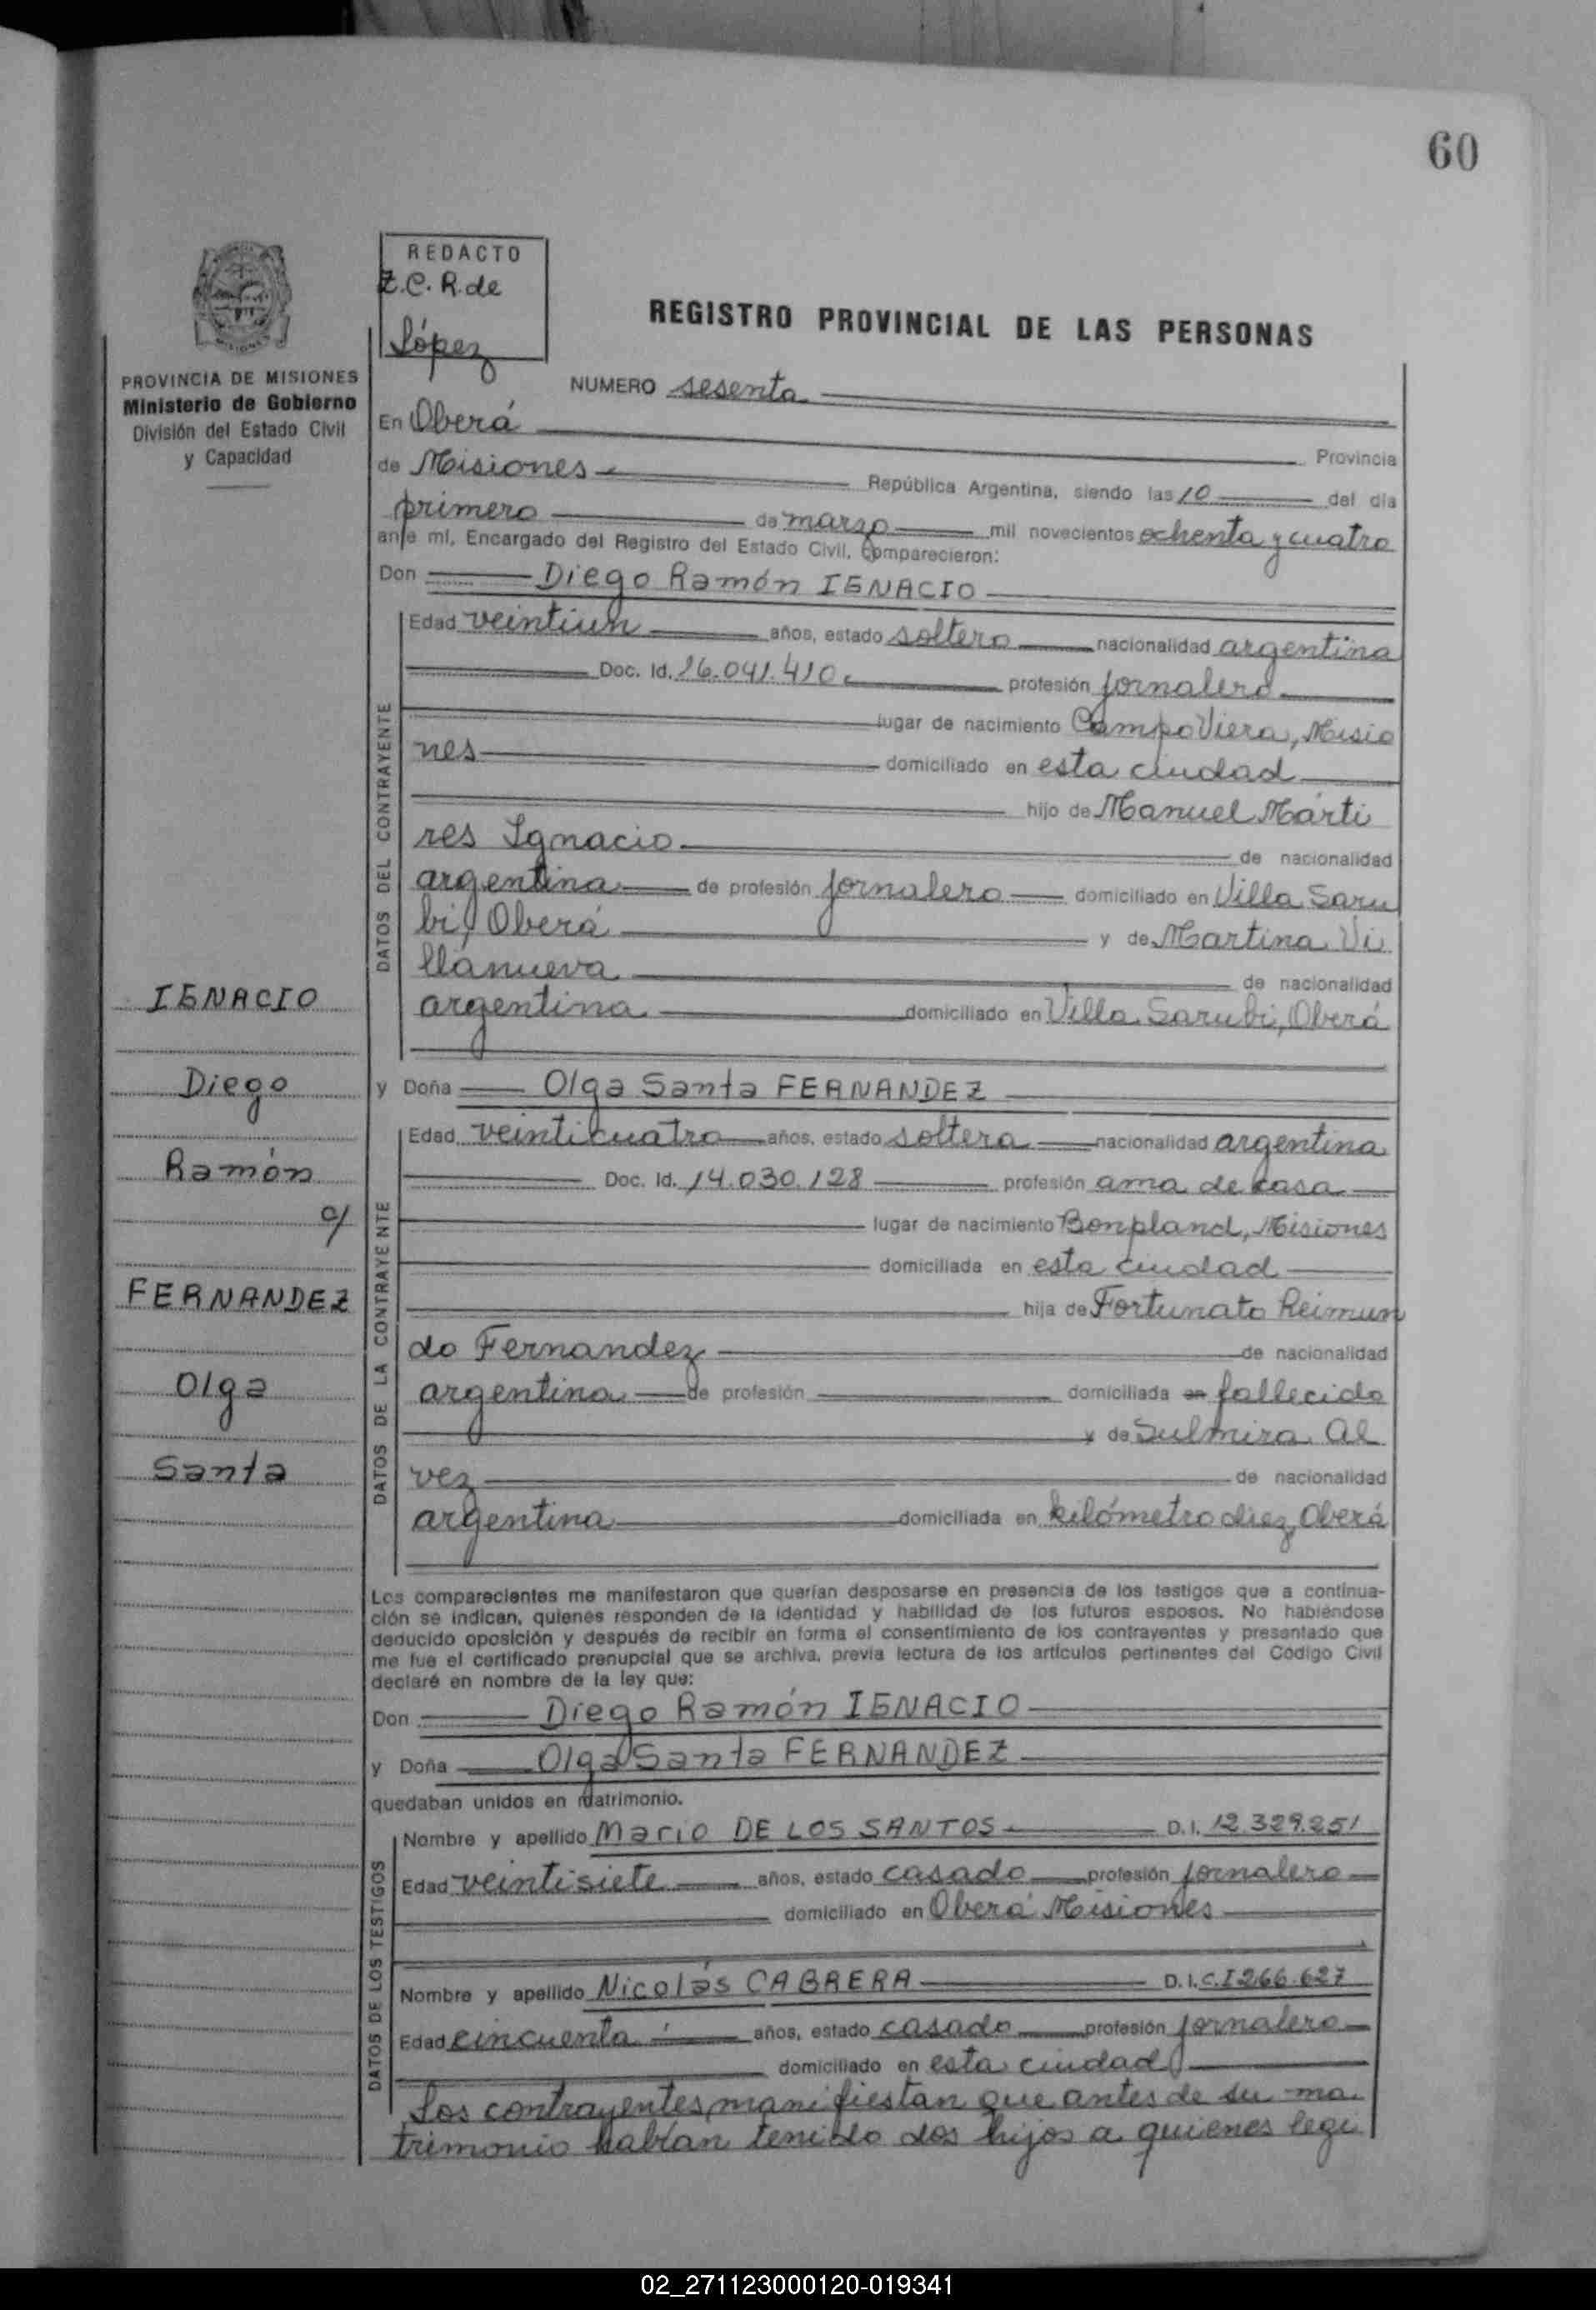 60
REDACTO
Z.C.R. de
López
REGISTRO PROVINCIAL DE LAS PERSONAS
PROVINCIA DE MISIONES
Ministerio de Gobierno
División del Estado Civil
y Capacidad
NUMERO sesenta
En Oberá
Provincia
de Misiones República Argentina, siendo las 10 del día
primero de marzo mil novecientos ochenta y cuatro
ante mí, Encargado del Registro del Estado Civil, comparecieron:
Don Diego Ramón IGNACIO
DATOS DEL CONTRAYENTE
Edad veintiun años, estado soltero nacionalidad argentina
Doc. Id. 16.041.410 profesión jornalero
lugar de nacimiento Campo Viera, Misio
nes domiciliado en esta ciudad
hijo de Manuel Marti
res Ignacio de nacionalidad
argentina de profesión jornalero domiciliado en Villa Saru
bi, Oberá y de Martina Vi
llanueva de nacionalidad
argentina domiciliado en Villa Sarubi, Oberá
IGNACIO
Diego
Ramón
c/
FERNANDEZ
Olga
Santa
y Doña Olga Santa FERNANDEZ
DATOS DE LA CONTRAYENTE
Edad veinticuatro años, estado soltera nacionalidad argentina
Doc. Id. 14.030.128 profesión ama de casa
lugar de nacimiento Bonpland, Misiones
domiciliada en esta ciudad
hija de Fortunato Reimun
do Fernandez de nacionalidad
argentina de profesión domiciliada en fallecido
y de Sulmira Al
vez de nacionalidad
argentina domiciliada en kilómetro diez, Oberá
Los comparecientes me manifestaron que querían desposarse en presencia de los testigos que a continua-
ción se indican, quienes responden de la identidad y habilidad de los futuros esposos. No habiéndose
deducido oposición y después de recibir en forma el consentimiento de los contrayentes y presentado que
me fue el certificado prenupcial que se archiva, previa lectura de los artículos pertinentes del Código Civil
declaré en nombre de la ley que:
Don Diego Ramón IGNACIO
y Doña Olga Santa FERNANDEZ
quedaban unidos en matrimonio.
DATOS DE LOS TESTIGOS
Nombre y apellido Mario DE LOS SANTOS D.I. 12.329.251
Edad veintisiete años, estado casado profesión jornalero
domiciliado en Oberá Misiones
Nombre y apellido Nicolás CABRERA D.I. C.I 266.627
Edad cincuenta años, estado casado profesión jornalero
domiciliado en esta ciudad
Los contrayentes manifiestan que antes de su ma
trimonio habían tenido dos hijos a quienes legi
02_271123000120-019341